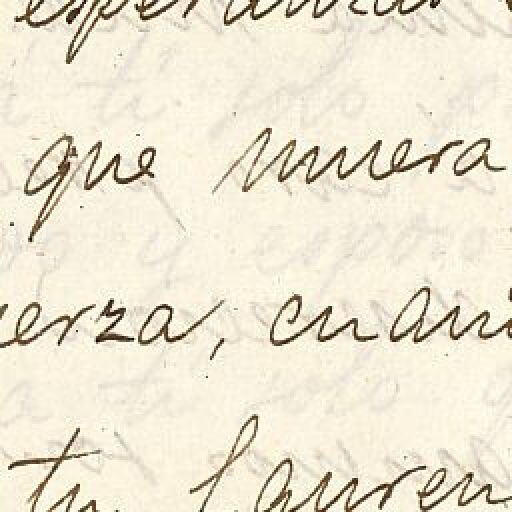 esperanzas
que muera
uerza, cuan
tu Lauren